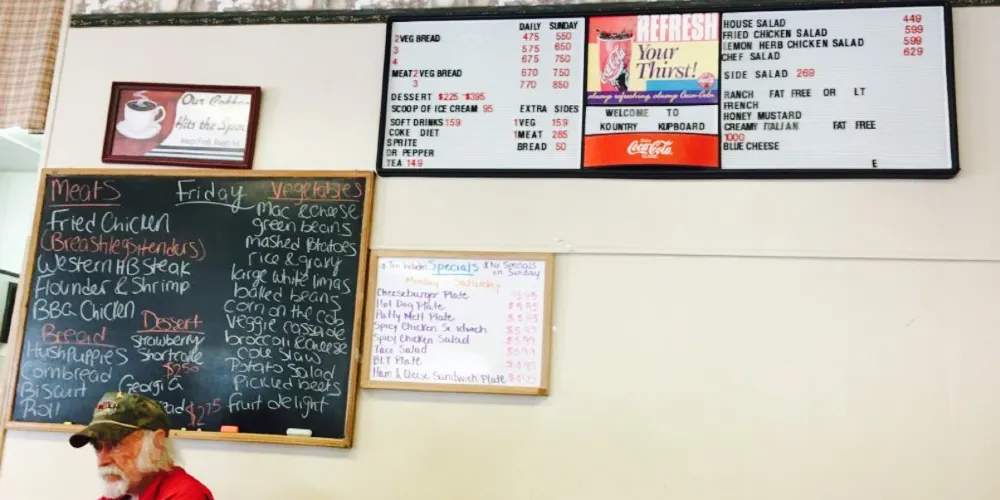 Our Coffee
Hits the Spot
Meats Friday Vegetables
Fried Chicken
(Breast legs tenders)
Western HB Steak
Flounder & Shrimp
BBQ Chicken
Bread
Hushpuppies
Cornbread
Biscuit
Roll
Dessert
Strawberry
Shortcake
$2.50
Georgia
$2.75
Mac & cheese
green beans
mashed potatoes
rice & gravy
large white limas
baked beans
corn on the cob
veggie casserole
broccoli & cheese
cole slaw
Potato Salad
Pickled beets
fruit delight
DAILY SUNDAY
2 VEG BREAD 475 550
3 575 650
4 675 750
MEAT 2 VEG BREAD 670 750
3 770 850
DESSERT $225 - $395
SCOOP OF ICE CREAM 95
EXTRA SIDES
SOFT DRINKS 159
COKE DIET
SPRITE
DR PEPPER
TEA 149
1 VEG 159
1 MEAT 285
BREAD 50
REFRESH
Your
Thirst!
always refreshing, always Coca-Cola
WELCOME TO
KOUNTRY KUPBOARD
Coca-Cola
CLASSIC
HOUSE SALAD 449
FRIED CHICKEN SALAD 599
LEMON HERB CHICKEN SALAD 599
CHEF SALAD 629
SIDE SALAD 269
RANCH FAT FREE OR LT
FRENCH
HONEY MUSTARD
CREAMY ITALIAN FAT FREE
1000
BLUE CHEESE
E
Tea Included Specials * No Specials
on Sunday
Monday Saturday
Cheeseburger Plate $5.95
Hot Dog Plate
Patty Melt Plate
Spicy Chicken Sandwich
Spicy Chicken Salad
Taco Salad
BLT Plate
Ham & Cheese Sandwich Plate